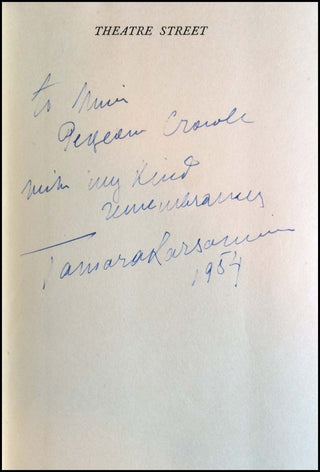 THEATRE STREET
to Miss
Crowle
with my kind
remembrances
Tamara Karsavina
1954